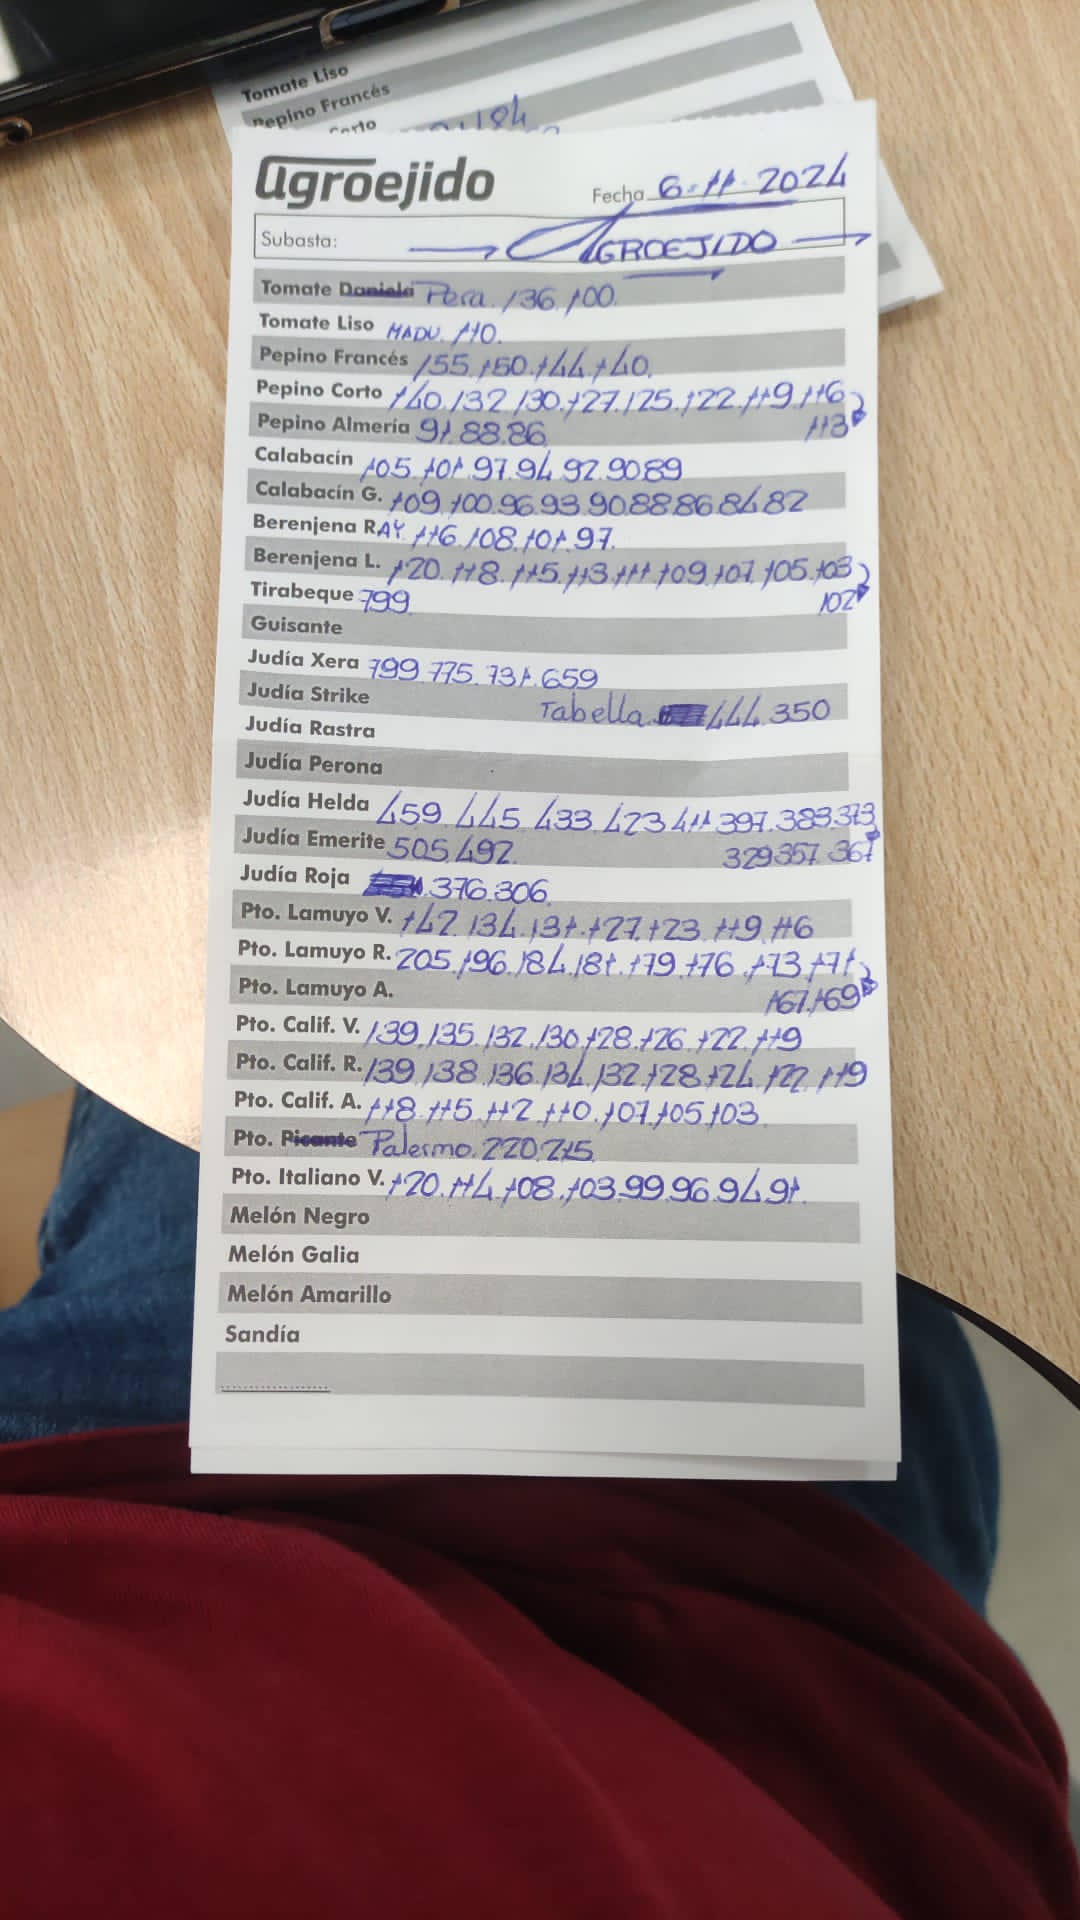 Tomate Liso
Pepino Francés
Corto
agroejido
Fecha 6-11-2024
Subasta: AGROEJIDO
Tomate Daniela Pera. 136.100.
Tomate Liso MADU. 110.
Pepino Francés 155.150.144.140.
Pepino Corto 140.132.130.127.125.122.119.116
113
Pepino Almería 91.88.86.
Calabacín 105.101.97.94.92.90.89
Calabacín G. 109.100.96.93.90.88.86.84.82
Berenjena RAY. 116.108.101.97.
Berenjena L. 120.118.115.113.111.109.107.105.103
102
Tirabeque 799
Guisante
Judía Xera 799.775.731.659
Judía Strike Tabella 444.350
Judía Rastra
Judía Perona
Judía Helda 459.445.433.423.411.397.383.373
329.357.367
Judía Emerite 505.492.
Judía Roja 376.306.
Pto. Lamuyo V. 142.134.131.127.123.119.116
Pto. Lamuyo R. 205.196.184.181.179.176.173.171
167.169
Pto. Lamuyo A.
Pto. Calif. V. 139.135.132.130.128.126.122.119
Pto. Calif. R. 139.138.136.134.132.128.124.122.119
Pto. Calif. A. 118.115.112.110.107.105.103.
Pto. Picante Palermo. 220.215.
Pto. Italiano V. 120.114.108.103.99.96.94.91.
Melón Negro
Melón Galia
Melón Amarillo
Sandía